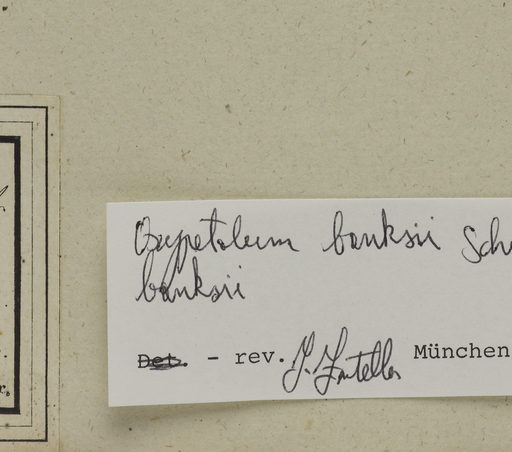 Oxypetalum banksii Sch
banksii
Det. - rev. J. Fontella München
r.